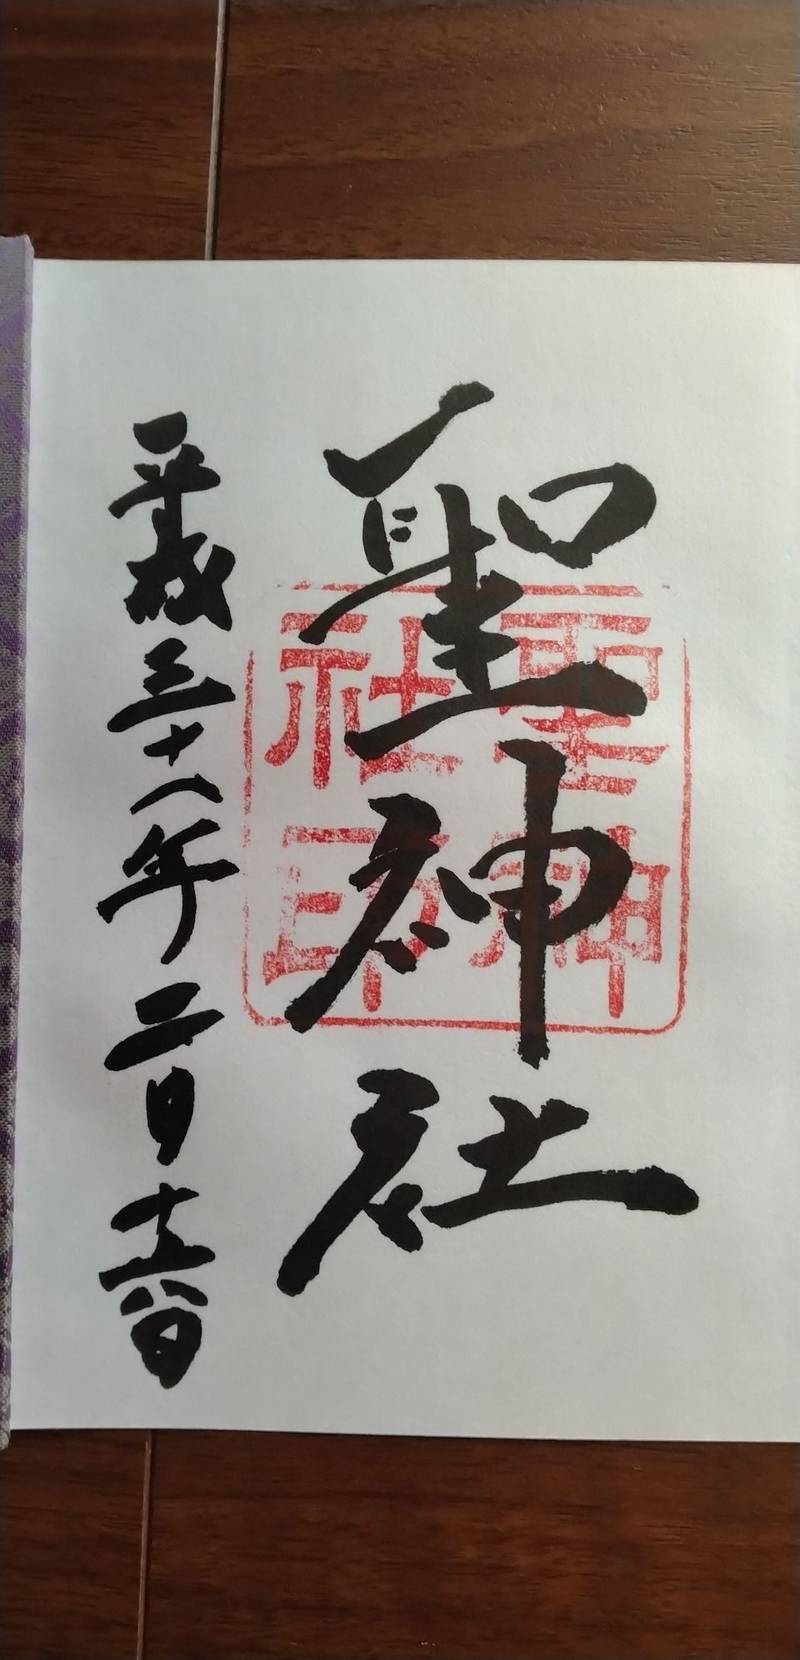 聖神社
聖神
社印
平成三十一年二月十六日